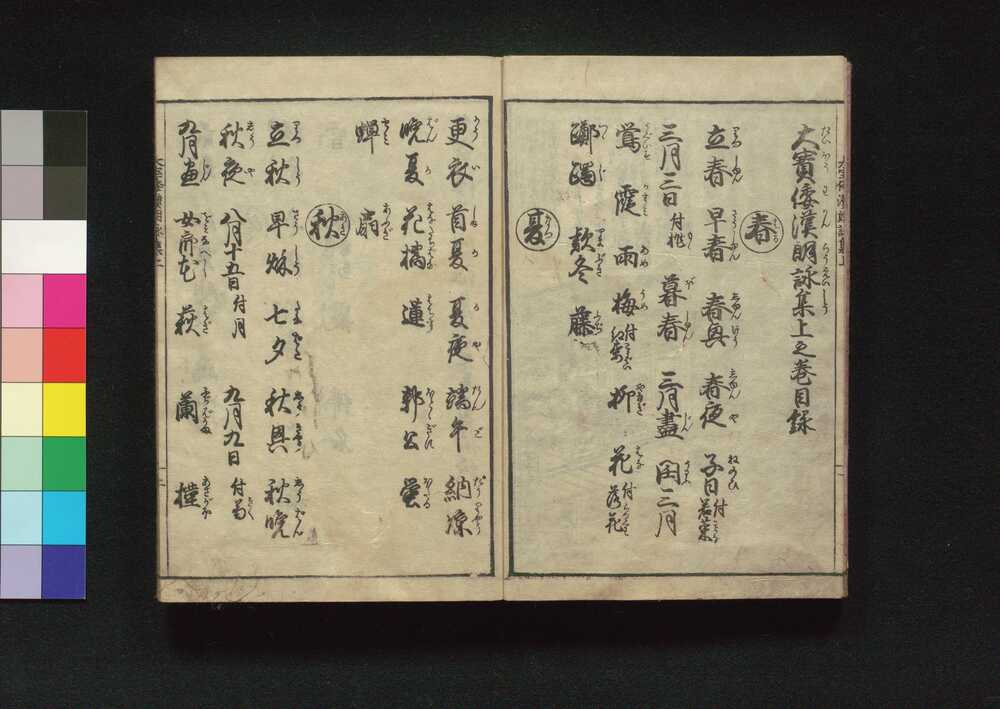 大寳倭漢朗詠集上之巻目録
春
立春 早春 春興 春夜 子日 付若菜
三月三日 付桃 暮春 三月盡 閏三月
鶯 霞 雨 梅 付紅梅 柳 花 付落花
躑躅 欵冬 藤
夏
更衣 首夏 夏夜 端午 納凉
晩夏 花橘 蓮 郭公 螢
蟬 扇
秋
立秋 早秋 七夕 秋興 秋晩
秋夜 八月十五日 付月 九月九日 付菊
九月盡 女郎花 萩 蘭 槿